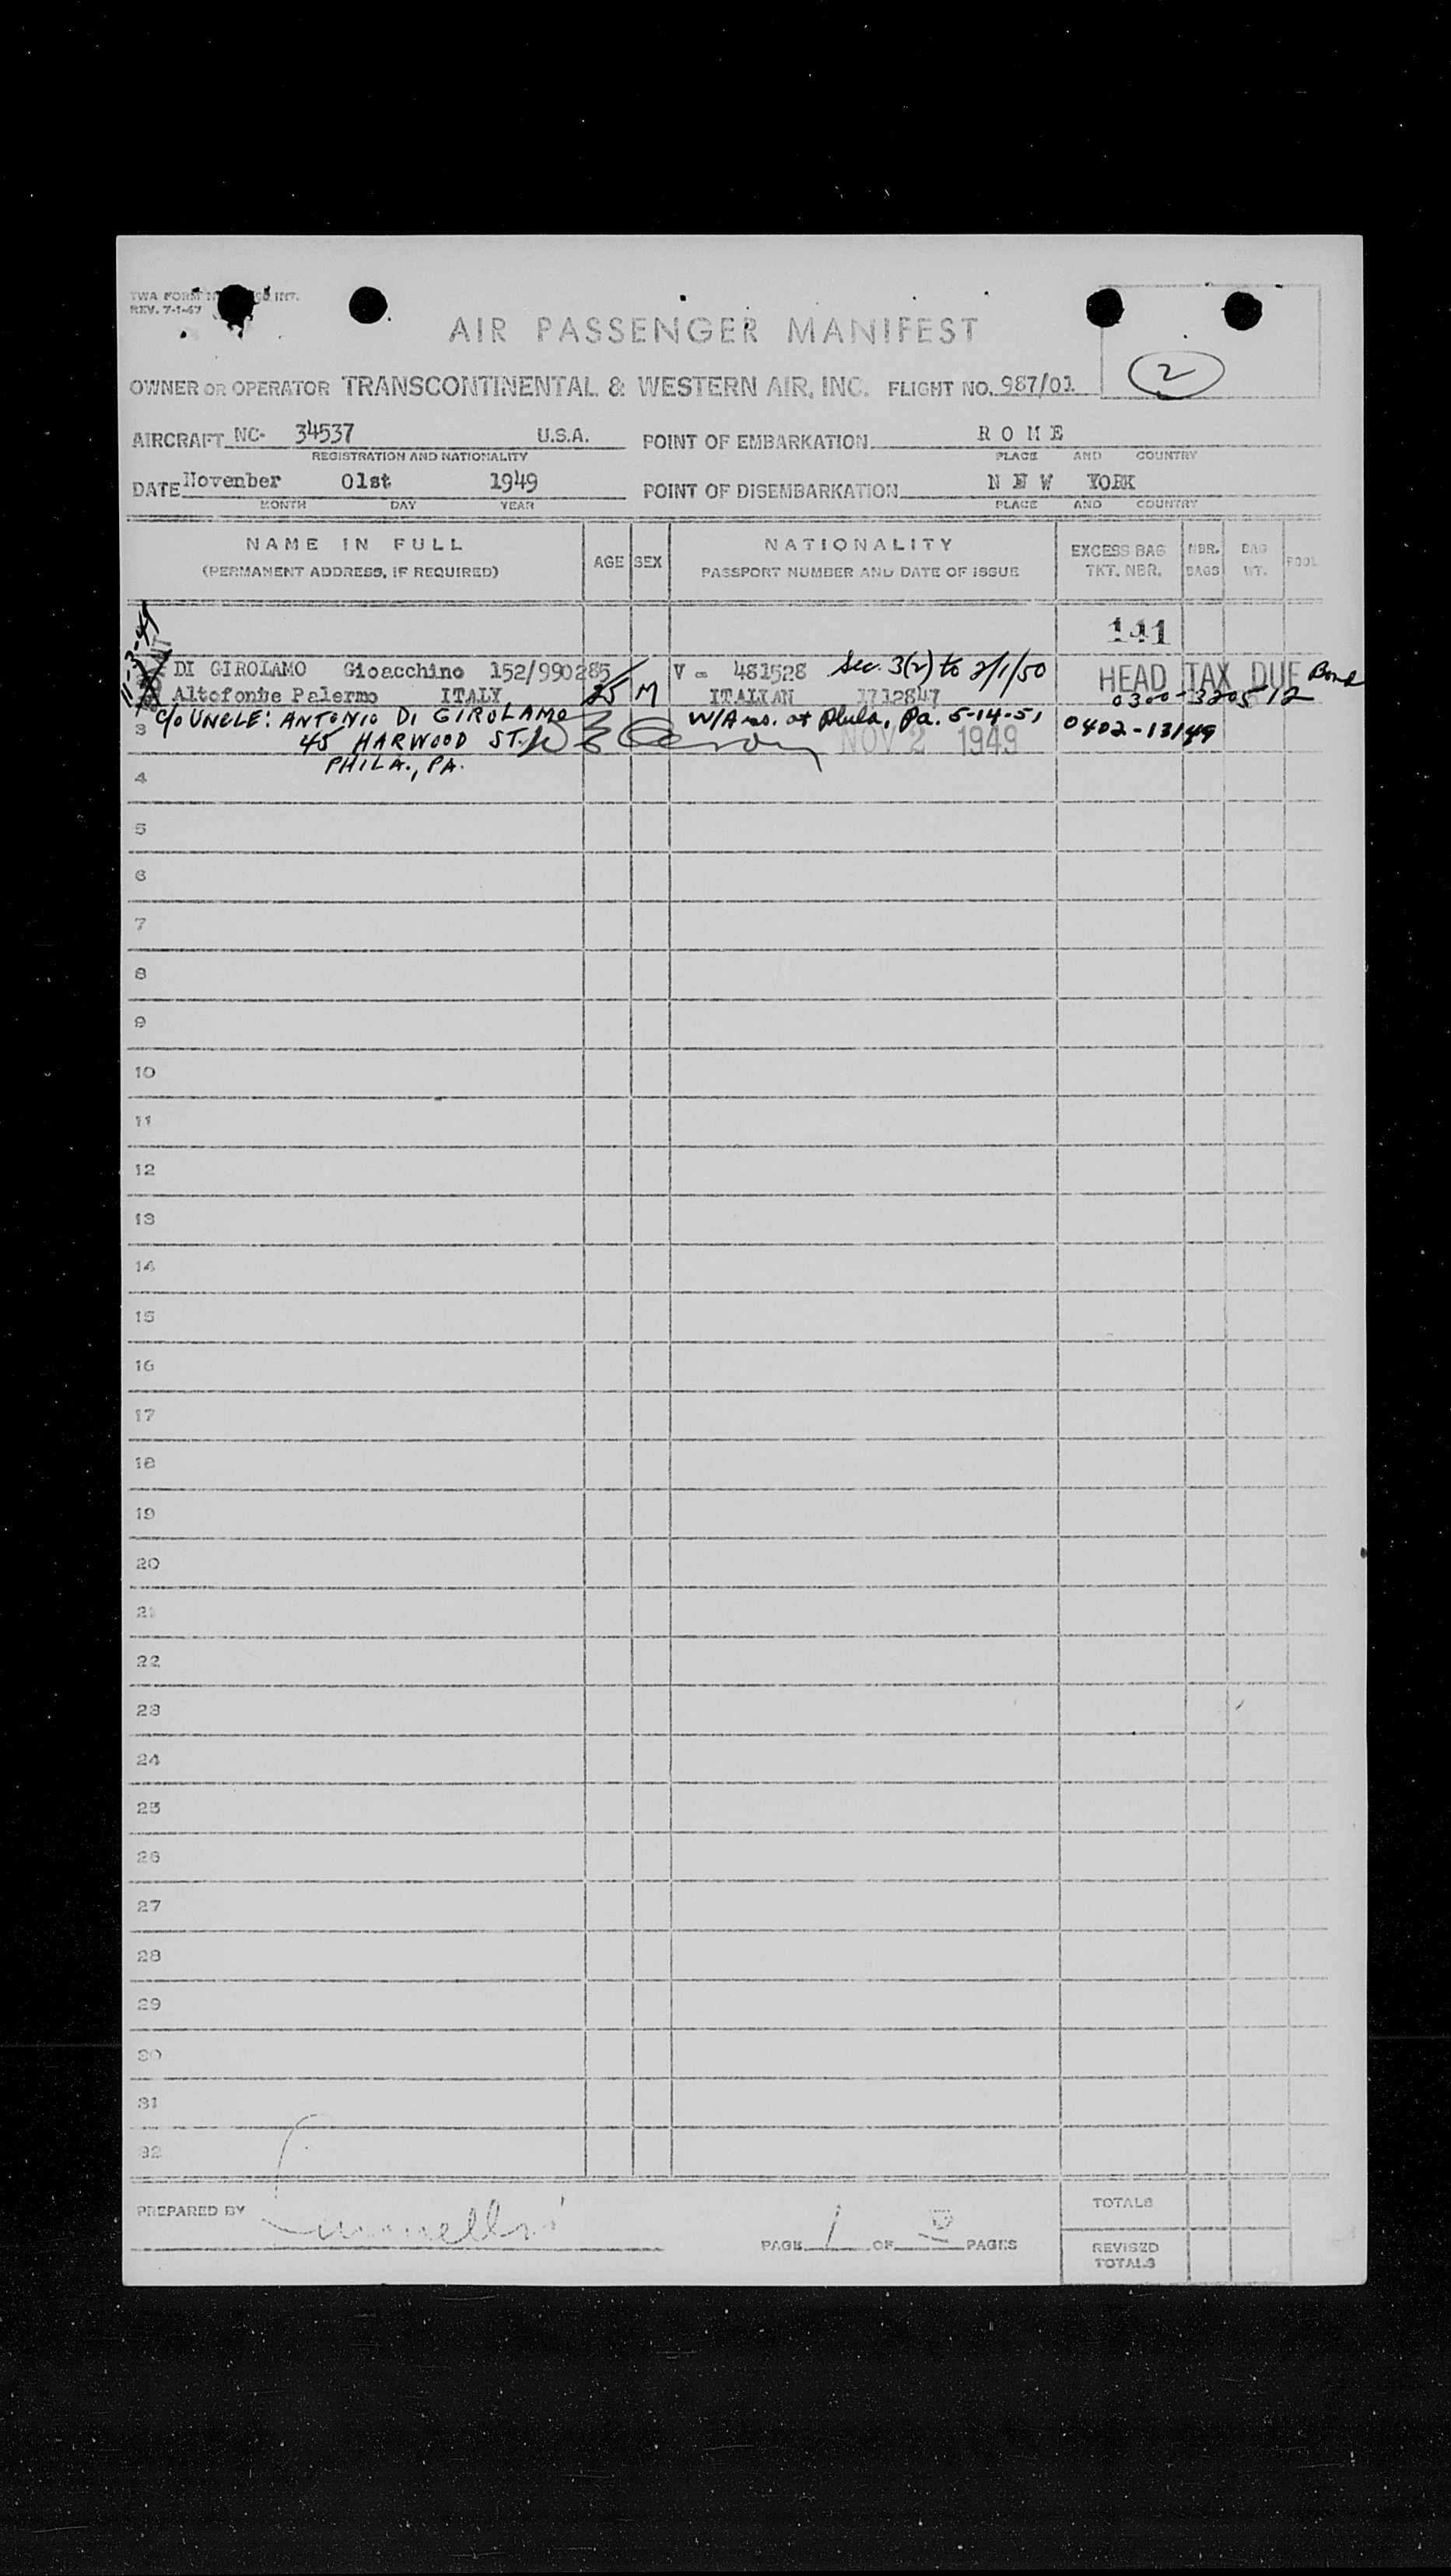 REV. 7-1-47
AIR PASSENGER MANIFEST
2
OWNER OR OPERATOR TRANSCONTINENTAL & WESTERN AIR, INC. FLIGHT NO. 987/01
AIRCRAFT NC- 34537 U.S.A. POINT OF EMBARKATION R O M E
REGISTRATION AND NATIONALITY PLACE AND COUNTRY
DATE November 01st 1949 POINT OF DISEMBARKATION N E W YORK
MONTH DAY YEAR PLACE AND COUNTRY
NAME IN FULL AGE SEX NATIONALITY EXCESS BAG NBR. BAG POOL
(PERMANENT ADDRESS, IF REQUIRED) PASSPORT NUMBER AND DATE OF ISSUE TKT. NBR. BAGS WT.
141
DI GIROLAMO Gioacchino 152/990285 V - 481528 Sec. 3(2) to 2/1/50 HEAD TAX DUE Bond
Altofonte Palermo ITALY 25 M ITALIAN 1712847 0300-320512
c/o UNCLE: ANTONIO DI GIROLAMO W/A at Phila, Pa. 5-14-51 0402-13149
3 45 HARWOOD ST. NOV 2 1949
PHILA., PA.
4
5
6
7
8
9
10
11
12
13
14
15
16
17
18
19
20
21
22
23
24
25
26
27
28
29
30
31
32
PREPARED BY PAGE 1 OF PAGES TOTALS
REVISED
TOTALS